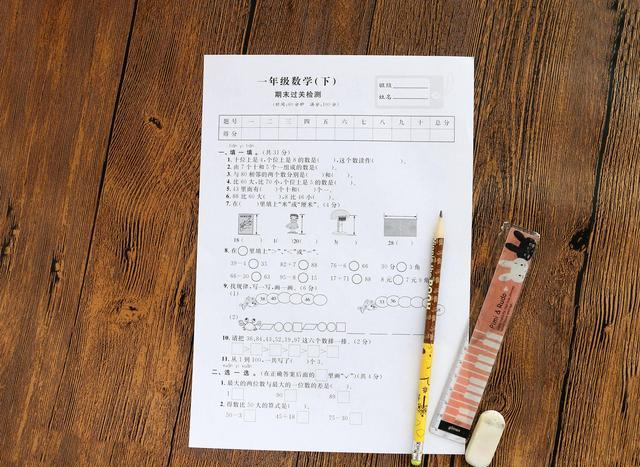 一年级数学(下)
期末过关检测
(时间:60分钟 满分:100分)
班级
姓名
题号 一 二 三 四 五 六 七 八 九 十 总分
得分
一、填一填。(共31分)
1. 十位上是4,个位上是8的数是( ),这个数读作( )。
2. 由7个十和5个一组成的数是( )。
3. 与80相邻的两个数分别是( )和( )。
4. 比60大,比70小,个位上是5的数是( )。
5. 43里面有( )个十和( )个一。
6. 88比60大( ),8比46小( )。
7. 在( )里填上“米”或“厘米”。(4分)
18( ) 1( )20( ) 3( ) 28( )
8. 在○里填上“>”、“<”或“=”。
39-4○35 82+7○88 76-6○66 30分○3角
66-30○63 95-8○15 17+71○88 8元○7元9角
9. 找规律,写一写,画一画。(6分)
(1) 38 40 46 33 36
(2)
10. 请把36,84,43,52,19,97这六个数排一排。(2分)
□>□>□>□>□>□
11. 从1到100,一共写了( )个3。
二、选一选。(在正确答案后面的□里画“✓”)(共4分)
1. 最大的两位数与最大的一位数的差是( )。
1□ 90□ 89□
2. 得数比50大的算式是( )。
50-3□ 45+18□ 75-30□
Pimi & Rudo